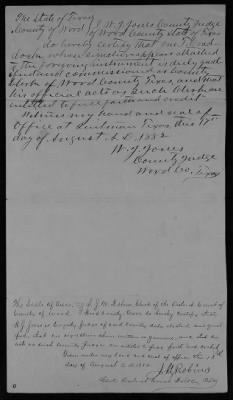 The State of Texas
County of Wood I W. J. Jones County Judge
of Wood County State of Texas
do hereby certify that
whose signature appears attached
to the foregoing instrument is duly
and commissioned as County
Clerk of Wood County Texas and that
his official acts as such Clerk are
entitled to full faith and credit
Witness my hand and seal of
Office at Quitman Texas this 17th
day of August A.D. 1882
W. J. Jones
County Judge
Wood Co. Texas
The State of Texas I J. W. Robins Clerk of the District Court of
County of Wood Wood County Texas do hereby certify that
W. J. Jones is County Judge of said County duly elected and qualified
that his signature above written is genuine, and that his
acts as such County Judge are entitled to full faith and credit
Given under my hand and seal of office this 18th
day of August A.D. 1882
J. W. Robins
Clerk District Court Wood Co. Texas